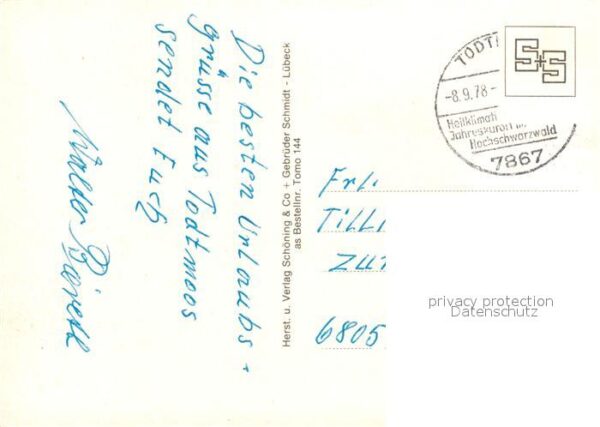 Die besten Urlaubs-
grüsse aus Todtmoos
sendet Euch
Herst. u. Verlag Schöning & Co + Gebrüder Schmidt - Lübeck
as Bestellnr. Tomo 144
S+S
TODT
-8.9.78-
Heilklimat
Jahreskurort im
Hochschwarzwald
7867
Frl.
Tilli
Zur
6805
privacy protection
Datenschutz